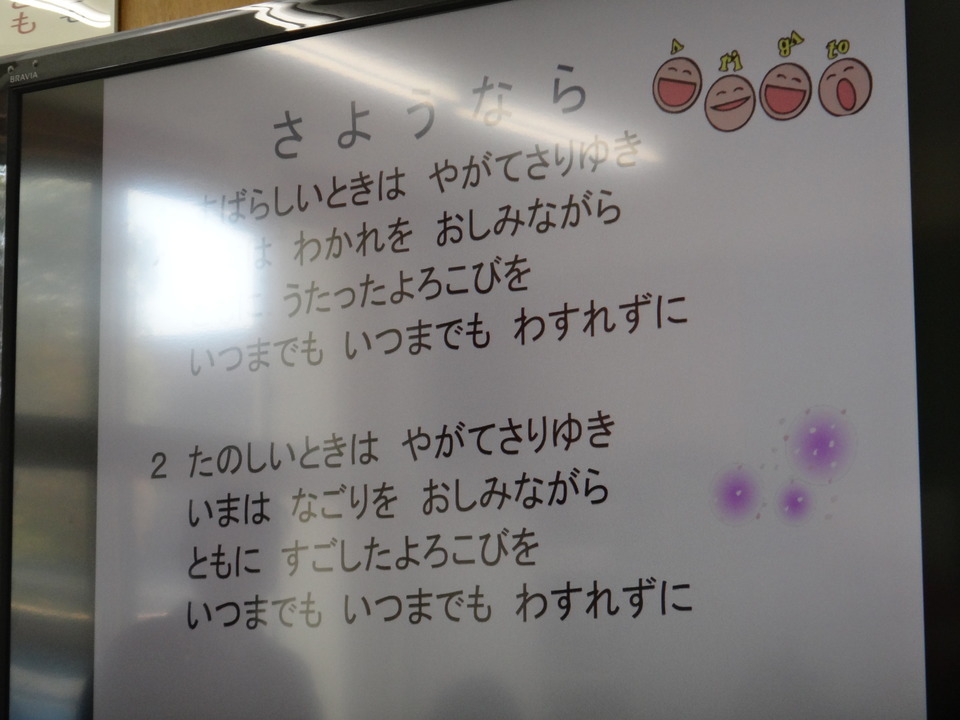 とも
BRAVIA
A ri ga to
さようなら
ばらしいときは やがてさりゆき
は わかれを おしみながら
に うたったよろこびを
いつまでも いつまでも わすれずに
2 たのしいときは やがてさりゆき
いまは なごりを おしみながら
ともに すごしたよろこびを
いつまでも いつまでも わすれずに